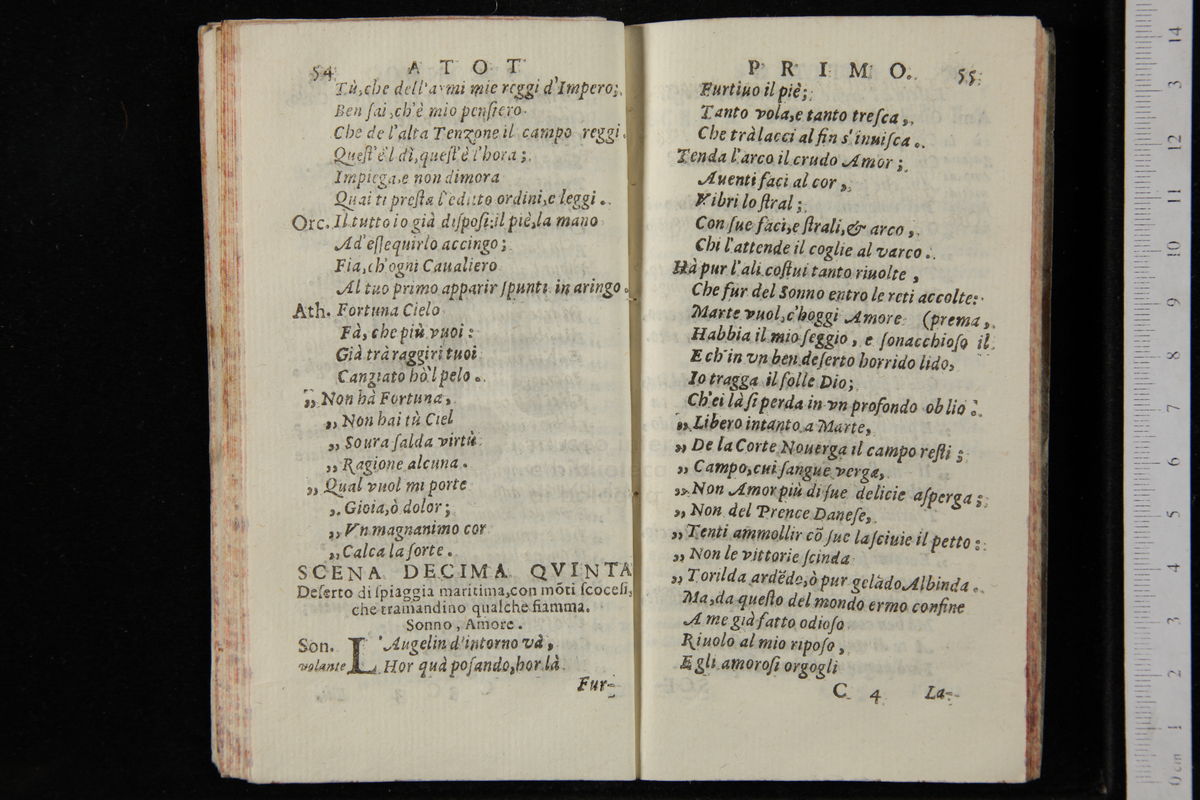 54 ATOT
Tù, che dell'armi mie reggi d'Impero;
Ben ſai, ch'è mio penſiero
Che de l'alta Tenzone il campo reggi.
Queſt'è'l dì, queſt'è l'hora;
Impiega, e non dimora
Quai ti preſta l'editto ordini, e leggi.
Orc. Il tutto io già diſpoſi; il piè, la mano
Ad'eſſequirlo accingo;
Fia, ch'ogni Caualiero
Al tuo primo apparir ſpunti in aringo.
Ath. Fortuna Cielo
Fà, che più vuoi:
Già trà raggiri tuoi
Canziato hò'l pelo.
„ Non hà Fortuna,
„ Non hai tù Ciel
„ Soura ſalda virtù
„ Ragione alcuna.
„ Qual vuol mi porte
„ Gioia, ò dolor;
„ Vn magnanimo cor
„ Calca la ſorte.
SCENA DECIMA QVINTA
Deſerto di ſpiaggia maritima, con mõti ſcoceſi,
che tramandino qualche fiamma.
Sonno, Amore.
Son. L'Augelin d'intorno và,
volante Hor quà poſando, hor là
Fur-
PRIMO. 55
Furtiuo il piè;
Tanto vola, e tanto treſca,
Che trà lacci al fin s'inuiſca.
Tenda l'arco il crudo Amor;
Auenti faci al cor,
Vibri lo ſtral;
Con ſue faci, e ſtrali, & arco,
Chi l'attende il coglie al varco.
Hà pur l'ali coſtui tanto riuolte,
Che fur del Sonno entro le reti accolte:
Marte vuol, c'hoggi Amore (prema,
Habbia il mio ſeggio, e ſonacchioſo il
E ch'in vn ben deſerto horrido lido,
Io tragga il folle Dio;
Ch'ei là ſi perda in vn profondo oblio:
„ Libero intanto a Marte,
„ De la Corte Nouerga il campo reſti;
„ Campo, cui ſangue verga,
„ Non Amor più di ſue delicie aſperga;
„ Non del Prence Daneſe,
„ Tenti ammollir cõ ſue laſciuie il petto:
„ Non le vittorie ſcinda
„ Torilda ardẽdo, ò pur gelãdo Albinda.
Ma, da queſto del mondo ermo confine
A me già fatto odioſo
Riuolo al mio ripoſo,
E gli amoroſi orgogli
C 4 La-